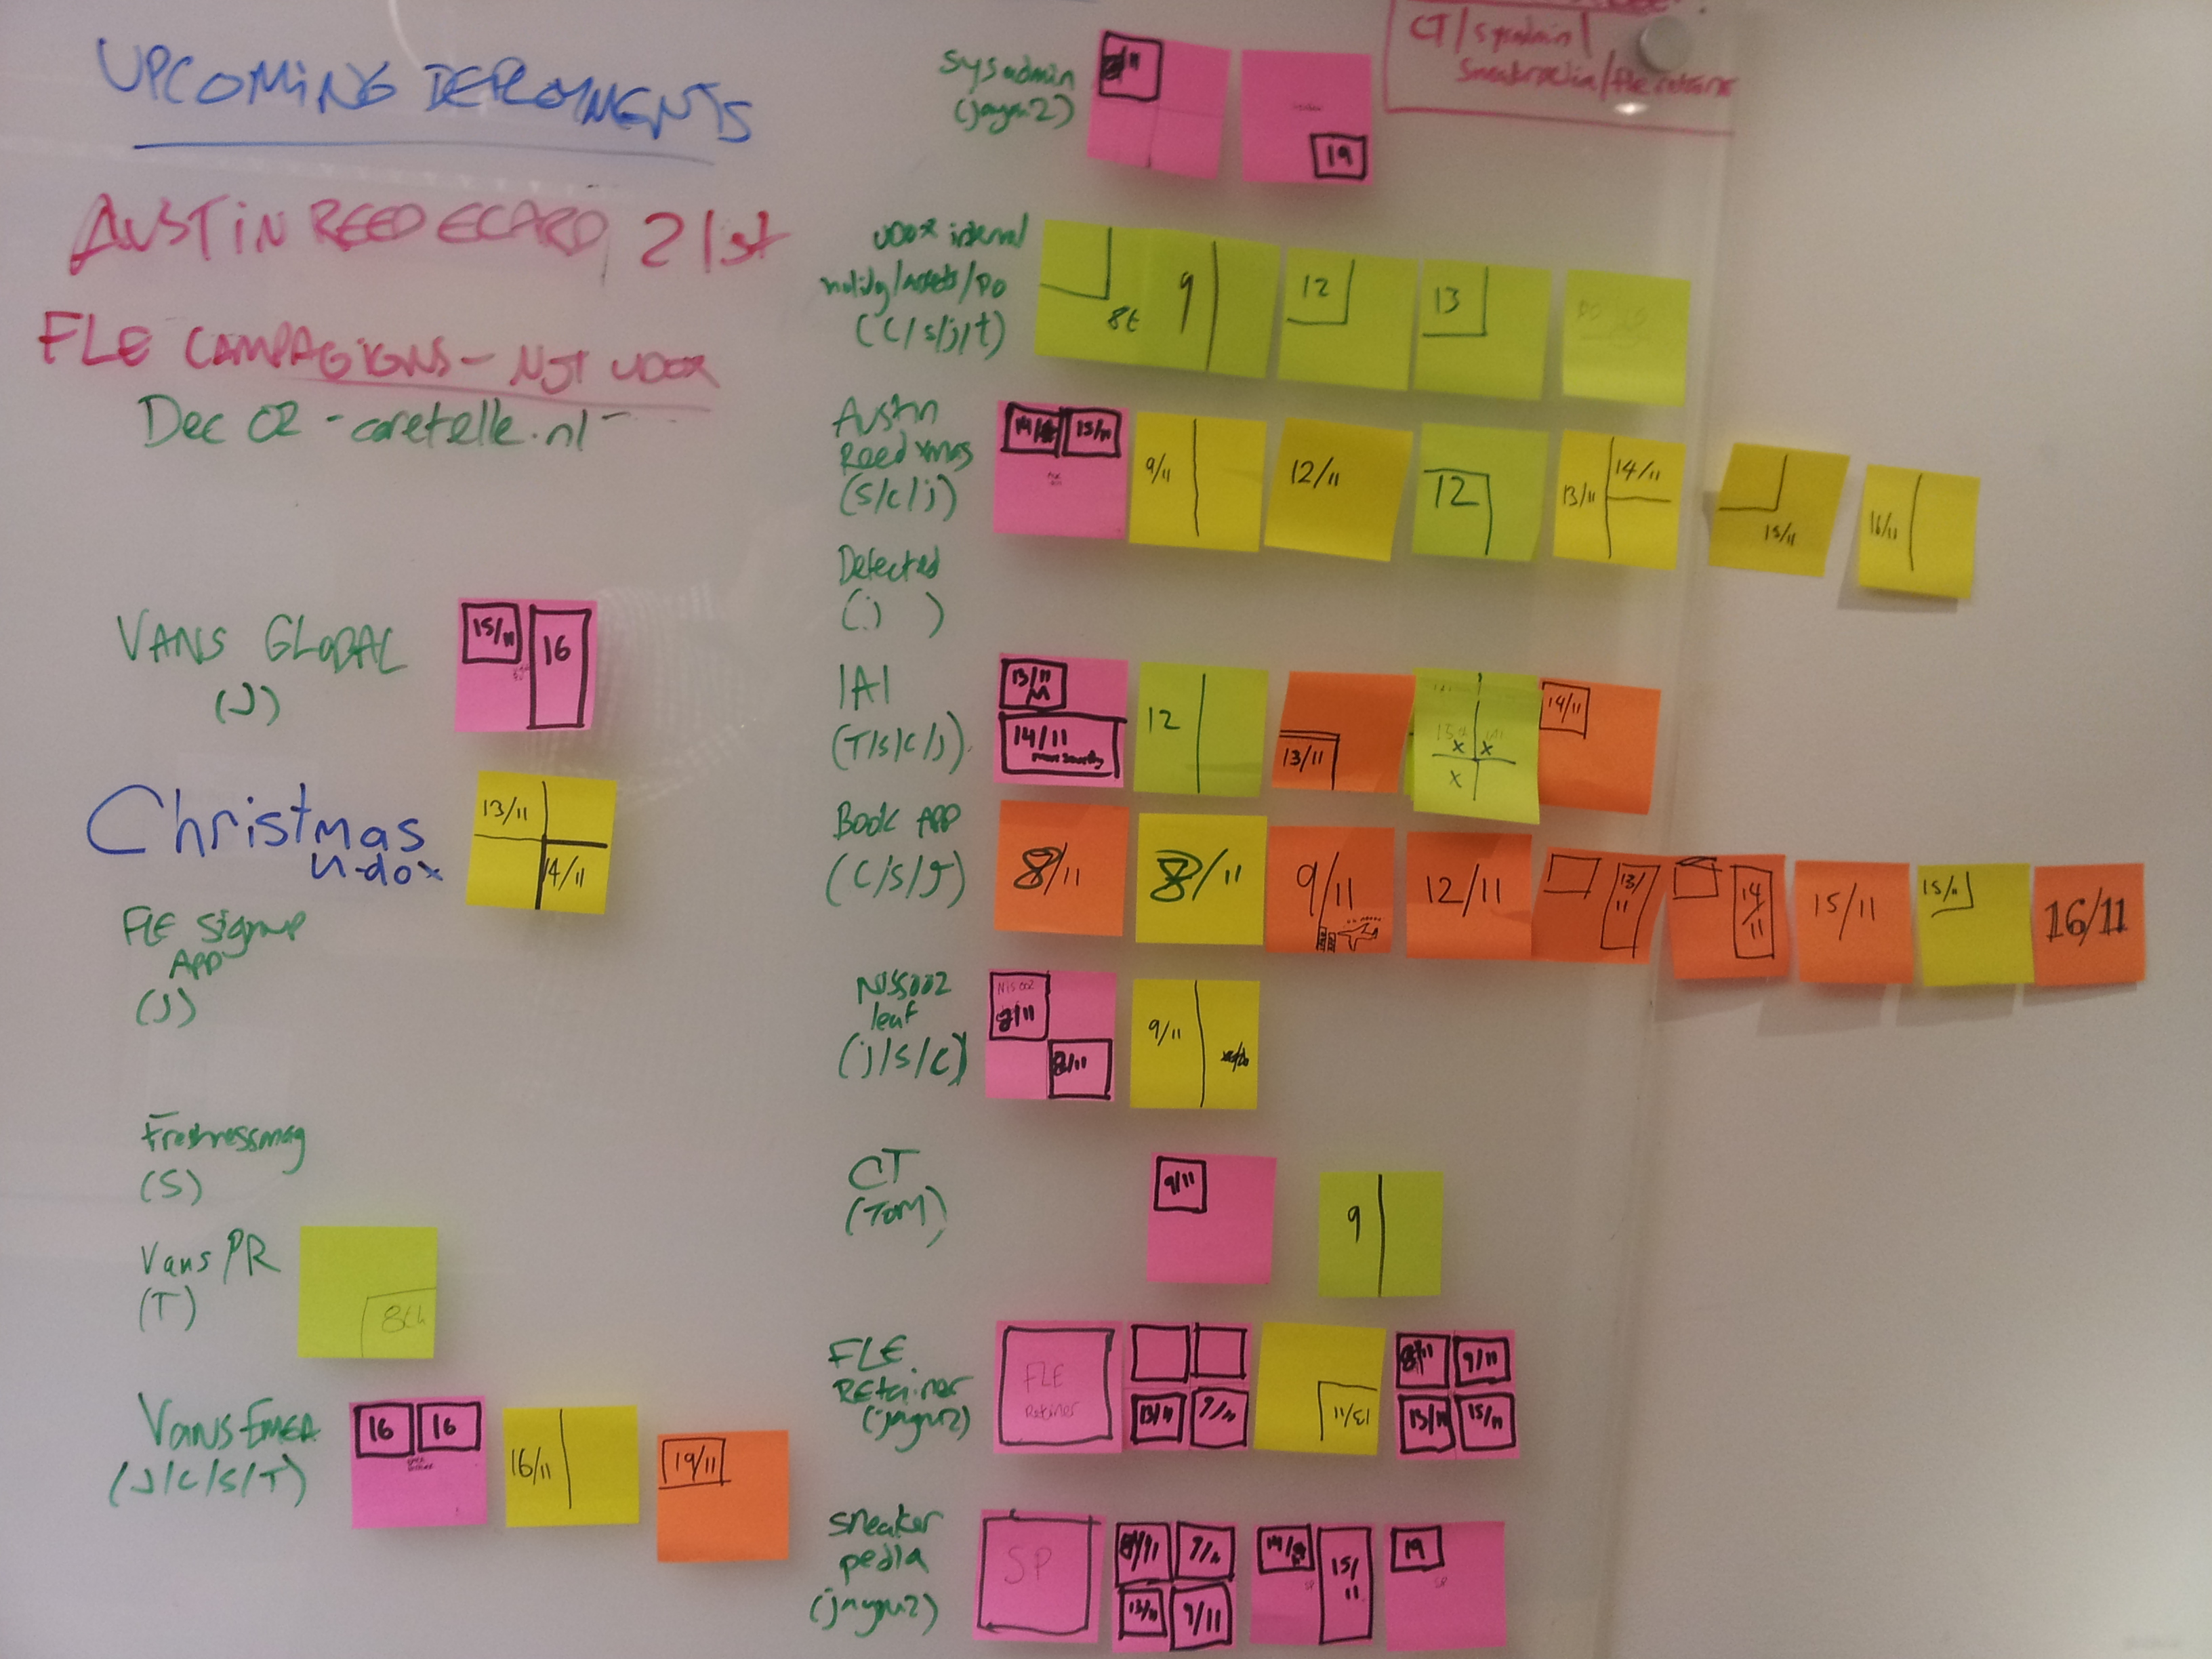 UPCOMING DEPLOYMENTS
AUSTIN REED ECARD 21st
FLE CAMPAGIGNS - NJT UDOX
Dec 02 - caretelle.nl -
VANS GLOBAL
(J)
15/11
16
Christmas
u-dox
13/11
14/11
FLE Signup
App
(J)
Freshnessmag
(S)
Vans PR
(T)
8th
Vans EMEA
(J/C/S/T)
16
16
16/11
19/11
CT/sysadmin/
sysadmin
(jagu2)
19
udox internal
/assets/PO
(C/S/j/t)
8t
9
12
13
Austin
Reed xmas
(S/C/j)
15/11
9/11
12/11
12
13/11
14/11
15/11
16/11
Defected
(j )
IAI
(T/S/C/J)
13/11
M
14/11
12
13/11
x x
x
14/11
Book APP
(C/S/J)
8/11
8/11
9/11
12/11
13/
11
14
11
15/11
15/11
16/11
NISS002
leaf
(j/S/C)
NIS002
8/11
9/11
CT
(TOM)
9/11
9
FLE
Retainer
(jagu2)
FLE
Retainer
13/11
9/11
13/11
8/11
9/11
13/11
15/11
Sneaker
pedia
(jagu2)
SP
9/11
13/11
9/11
15/
11
SP
19
SP